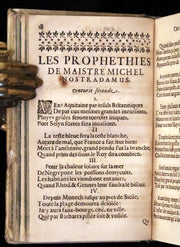 LES PROPHETIES
DE MAISTRE MICHEL
NOSTRADAMUS.
Centurie seconde.
I
VERS Aquitaine par insuls Britanniques
De par eux mesmes grandes incursions,
Pluyes gelées feront terroirs iniques,
Port Selyn fortes fera inuasions.
II
La teste bleue fera la teste blanche,
Autant de mal, que France a fait leur bien
Mort à l'anthene, grand pendu sus la branche,
Quand prins des siens le Roy dira combien.
III
Pour la chaleur solaire sur la mer
De Negrepont les poissons demy cuits,
Les habitans les viendront entamer,
Quand Rhod & Gennes leur faudra le biscuit.
IV.
Depuis Monach iusqu'au pres de Sicile,
Toute la plage demourra desolée:
Il n'y aura faux-bourg, cité, ne ville,
Que par Barbares pillée soit & vollée.